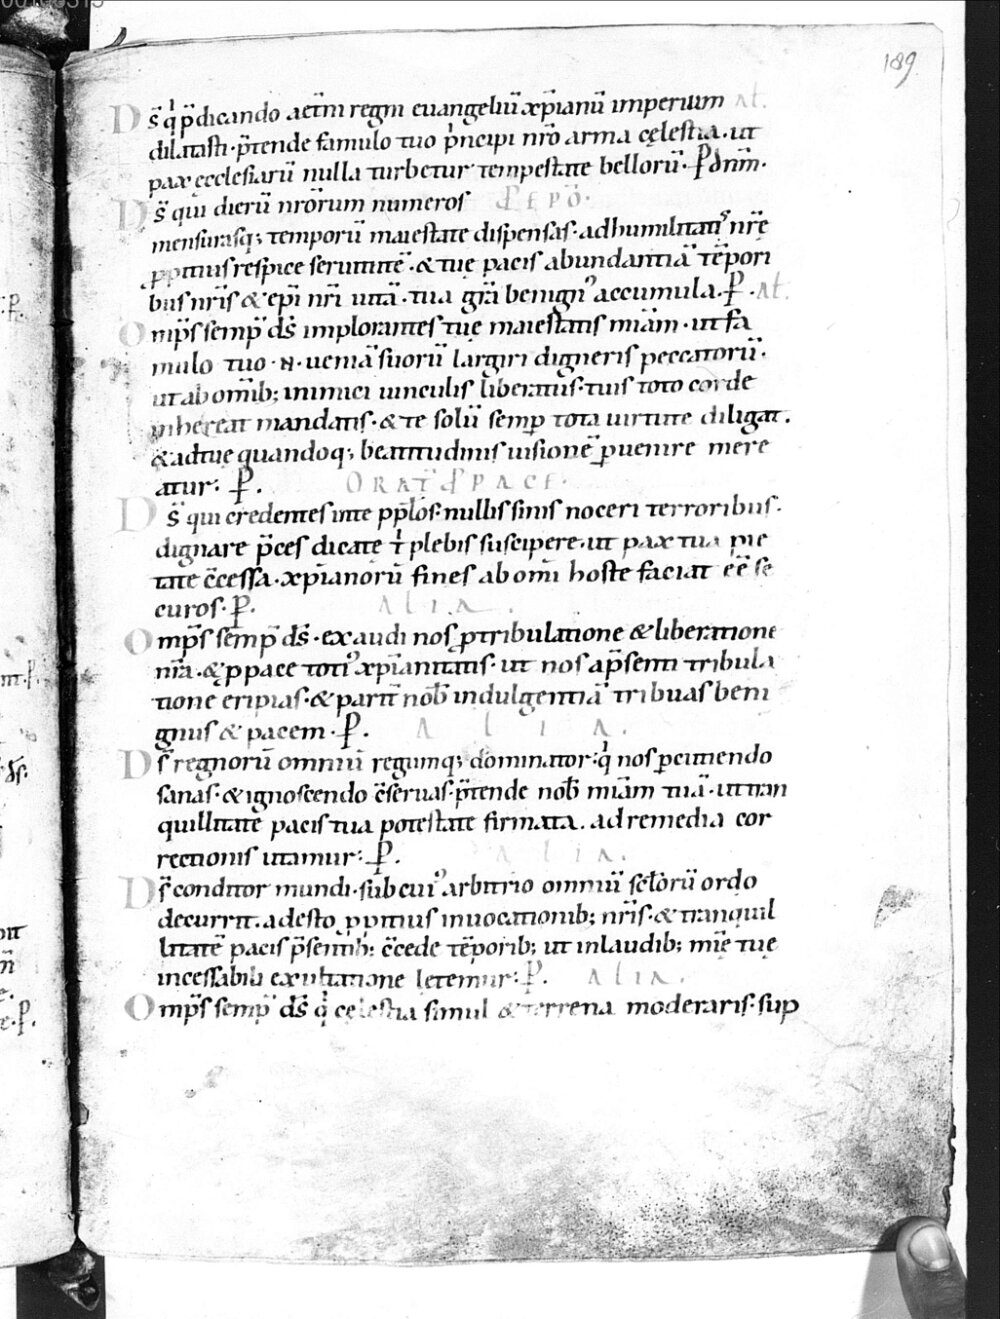 189
Ds̄ qͥ p̄dicando aet̄ni regni euangeliū xp̄ianū imperium At.
dilatasti · p̄tende famulo tuo pͥncipi nr̄o arma cęlestia · ut
pax ęcclesiarū nulla turbetur tempestate bellorū · P dnm̄ ·
Ds̄ qui dierū nr̄orum numeros
mensurasq; temporū maiestate dispensas · ad humilitatis nr̄ę
ꝓpitius respice seruitutē · & tuę pacis abundantiā tēpori
bus nr̄is & epi nr̄i uitā · tua gr̄a benignꝰ accumula · P · At.
Omp̄s semp̄ ds̄ implorantes tuę maiestatis mīam · ut fa
mulo tuo · N · ueniā suorū largiri digneris peccatorū ·
ut ab om̄ib; inimici uinculis liberatus · tuis toto corde
inhereat mandatis · & te solū semp̄ tota uirtute diligat ·
& ad tuę quandoq; beatitudinis uisionē ꝑuenire mere
atur : P . ORAT̄ P PACE ·
Ds̄ qui credentes in te pp̄los · nullis sinis noceri terroribus ·
dignare p̄ces dicate t̄ plebis suscipere · ut pax tua pie
tate c̄cessa · xp̄ianorū fines ab om̄i hoste faciat ēē se
curos · P . ALIA .
Omp̄s semp̄ ds̄ · exaudi nos ꝓ tribulatione & liberatione
nr̄a · & ꝓ pace totiꝰ xp̄ianitatis · ut nos a p̄senti tribula
tione eripias · & parit̄ nob̄ indulgentiā tribuas beni
gnus & pacem · P . ALIA .
Ds̄ regnorū omniū regumq; dominator · qͥ nos ꝑcutiendo
sanas · & ignoscendo c̄seruas · p̄tende nob̄ mīam tuā · ut tran
quillitate pacis tua potestate firmata · ad remedia cor
rectionis utamur : P . ALIA .
Ds̄ conditor mundi · sub cuiꝰ arbitrio omniū sc̄lorū ordo
decurrit · adesto ꝓpitius inuocationib; nr̄is · & tranquil
litatē pacis p̄sentib; c̄cede tēporib; ut in laudib; mīę tuę
incessabili exultatione lętemur : P . ALIA .
Omp̄s semp̄ ds̄ qͥ cęlestia simul & terrena moderaris · sup